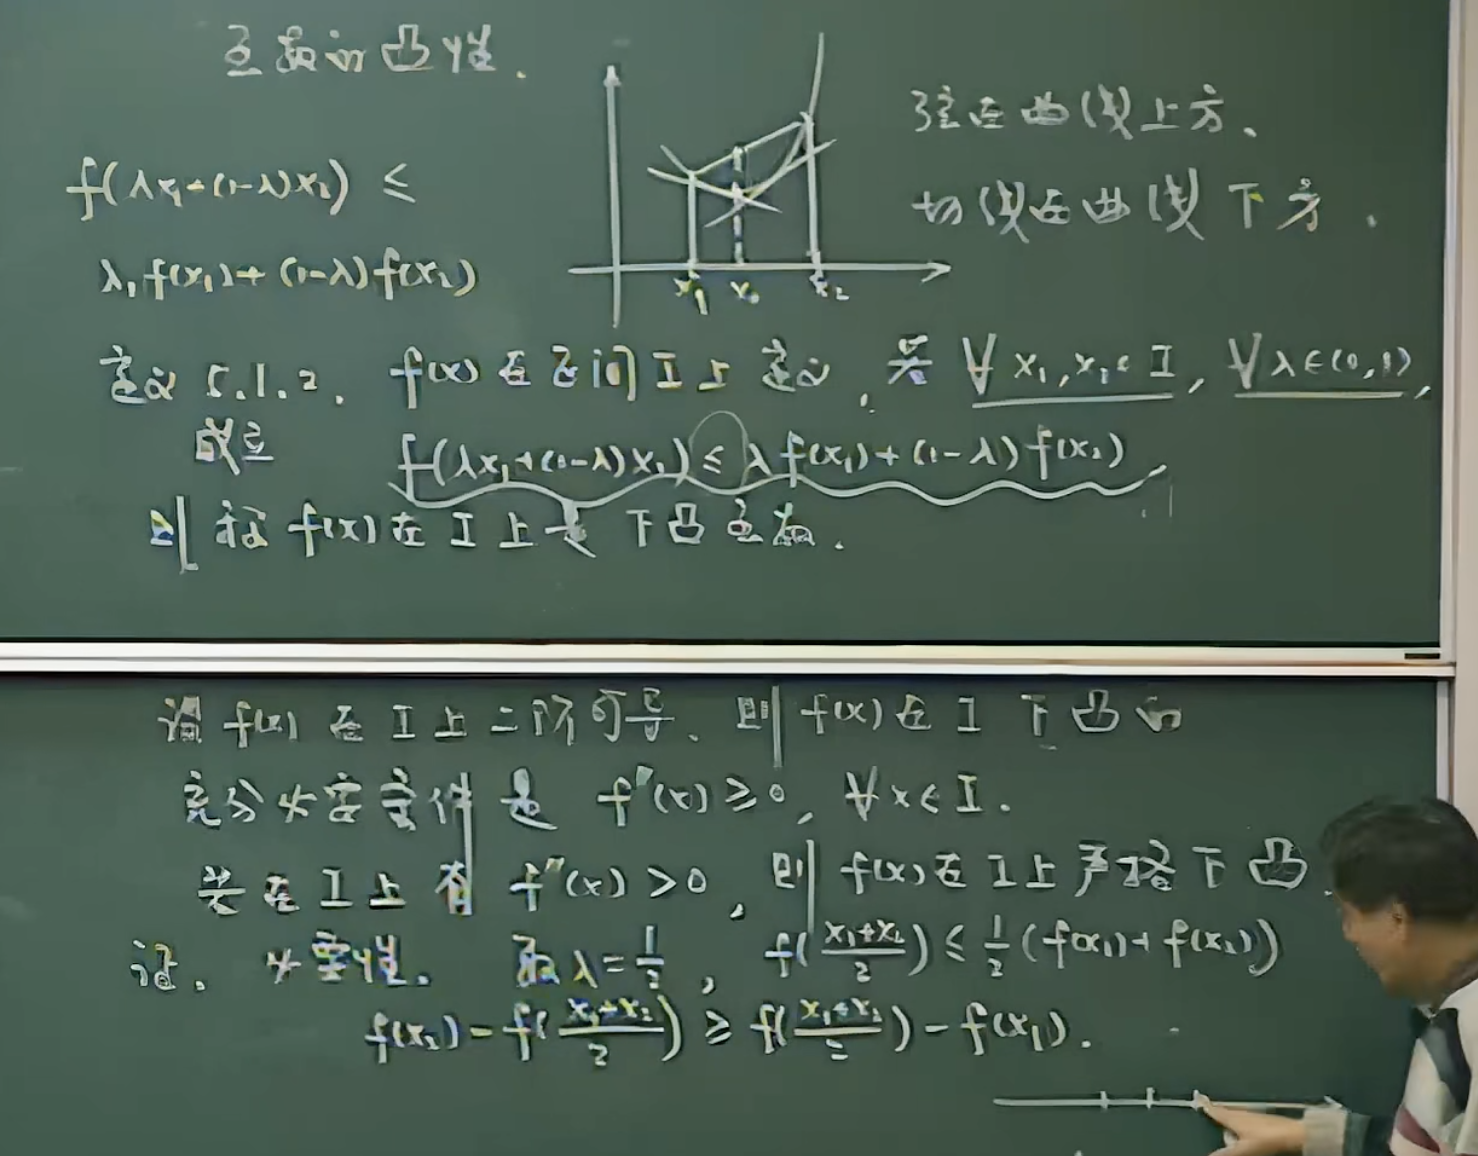 函数的凸性.
弦在曲线上方、
切线在曲线下方.
f(λx₁+(1-λ)x₂) ≤
λ₁f(x₁)+(1-λ)f(x₂)
x₁ x₀ x₂
定义 5.1.2. f(x) 在区间 I 上定义, 若 ∀ x₁,x₂∈I, ∀λ∈(0,1),
成立 f(λx₁+(1-λ)x₂) ≤ λf(x₁)+(1-λ)f(x₂),
则称 f(x) 在 I 上是下凸函数.
设 f(x) 在 I 上二阶可导、则 f(x) 在 I 下凸的
充分必要条件是 f″(x)≥0, ∀x∈I.
若在 I 上有 f″(x)>0, 则 f(x) 在 I 上严格下凸.
证. 必要性. 取 λ=1/2, f((x₁+x₂)/2) ≤ 1/2(f(x₁)+f(x₂))
f(x₂)-f((x₁+x₂)/2) ≥ f((x₁+x₂)/2)-f(x₁).